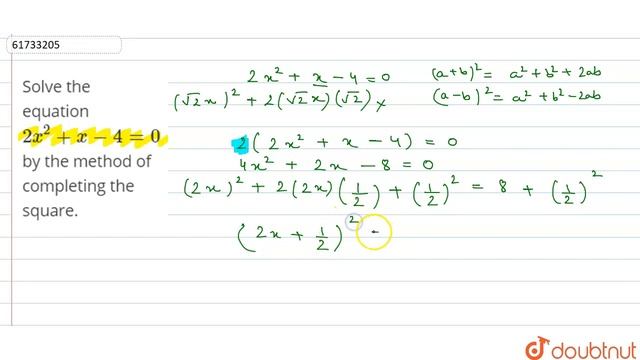 61733205
Solve the
equation
2x² + x − 4 = 0
by the method of
completing the
square.
2x² + x − 4 = 0
(√2x)² + 2(√2x)(√2) x
(a+b)² = a² + b² + 2ab
(a−b)² = a² + b² − 2ab
2(2x² + x − 4) = 0
4x² + 2x − 8 = 0
(2x)² + 2(2x)(1/2) + (1/2)² = 8 + (1/2)²
(2x + 1/2)² =
doubtnut